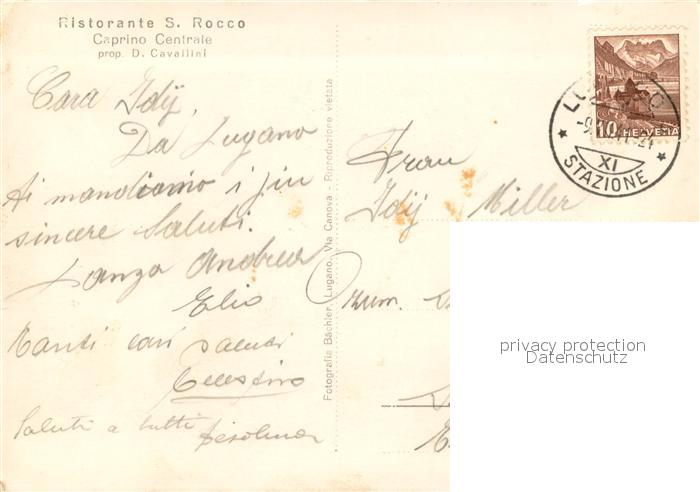 Ristorante S. Rocco
Caprino Centrale
prop. D. Cavallini
Cara Idÿ,
Da Lugano
Ai mandiamo i piu
sincere saluti.
Lanza Andrea
Elio
Tanti cari saluti
Celestino
Saluti a tutti
Fotografia Bächler, Lugano, Via Canova - Riproduzione vietata
10 HELVETIA
LUGANO
XI
STAZIONE
Frau
Idÿ Miller
privacy protection
Datenschutz